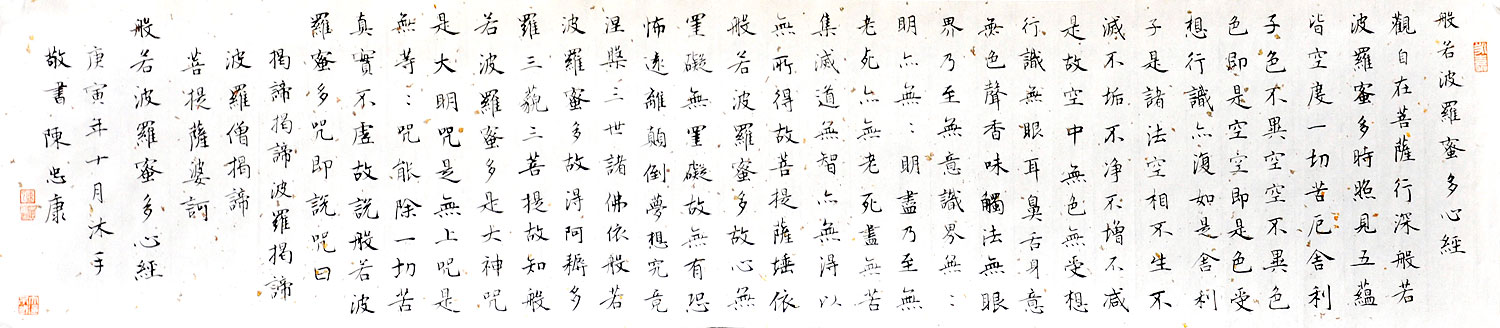 般若波羅蜜多心經
觀自在菩薩行深般若
波羅蜜多時照見五蘊
皆空度一切苦厄舍利
子色不異空空不異色
色即是空空即是色受
想行識亦復如是舍利
子是諸法空相不生不
滅不垢不淨不增不减
是故空中無色無受想
行識無眼耳鼻舌身意
無色聲香味觸法無眼
界乃至無意識界無:
明亦無:明盡乃至無
老死亦無老死盡無苦
集滅道無智亦無得以
無所得故菩提薩埵依
般若波羅蜜多故心無
罣礙無罣礙故無有恐
怖遠離顛倒夢想究竟
涅槃三世諸佛依般若
波羅蜜多故得阿耨多
羅三藐三菩提故知般
若波羅蜜多是大神咒
是大明咒是無上咒是
無等:咒能除一切苦
真實不虛故說般若波
羅蜜多咒即說咒曰
揭諦揭諦波羅揭諦
波羅僧揭諦
菩提薩婆訶
般若波羅蜜多心經
庚寅年十月沐手
敬書陳忠康